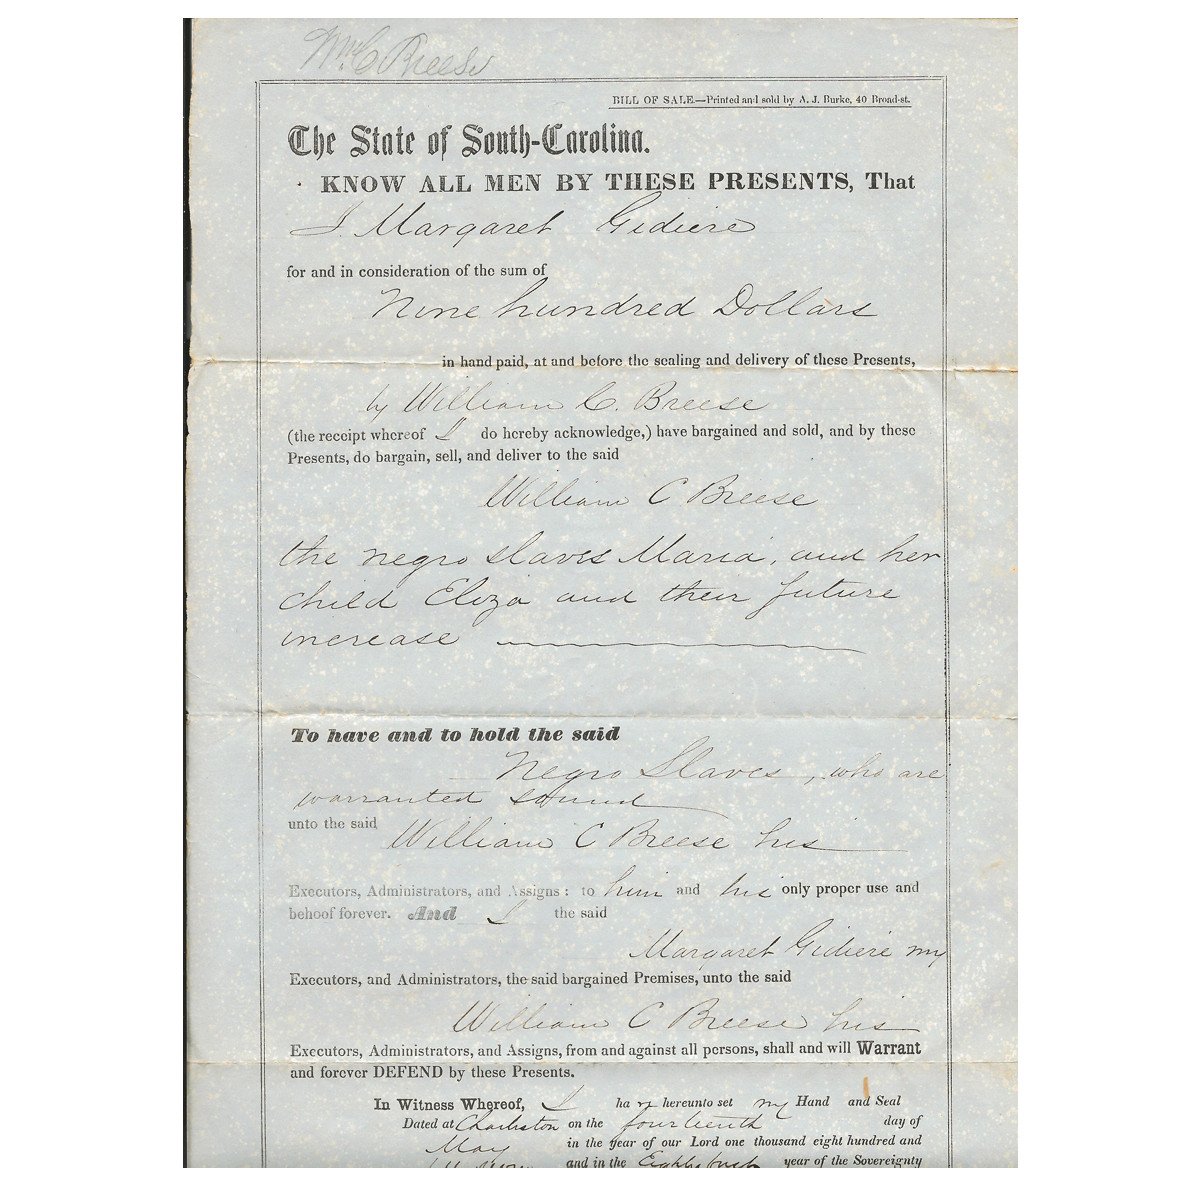 Wm C Breese
BILL OF SALE.—Printed and sold by A. J. Burke, 40 Broad-st.
The State of South-Carolina.
KNOW ALL MEN BY THESE PRESENTS, That
I Margaret Gidiere
for and in consideration of the sum of
Nine hundred Dollars
in hand paid, at and before the sealing and delivery of these Presents,
by William C. Breese
(the receipt whereof I do hereby acknowledge,) have bargained and sold, and by these
Presents, do bargain, sell, and deliver to the said
William C Breese
the negro slaves Maria, and her
child Eliza and their future
increase
To have and to hold the said
Negro Slaves, who are
warranted sound
unto the said
William C Breese his
Executors, Administrators, and Assigns: to him and his only proper use and
behoof forever. And I the said
Margaret Gidiere my
Executors, and Administrators, the said bargained Premises, unto the said
William C Breese his
Executors, Administrators, and Assigns, from and against all persons, shall and will Warrant
and forever DEFEND by these Presents.
In Witness Whereof, I ha ve hereunto set my Hand and Seal
Dated at Charleston on the fourteenth day of
May in the year of our Lord one thousand eight hundred and
and in the Eighty first year of the Sovereignty